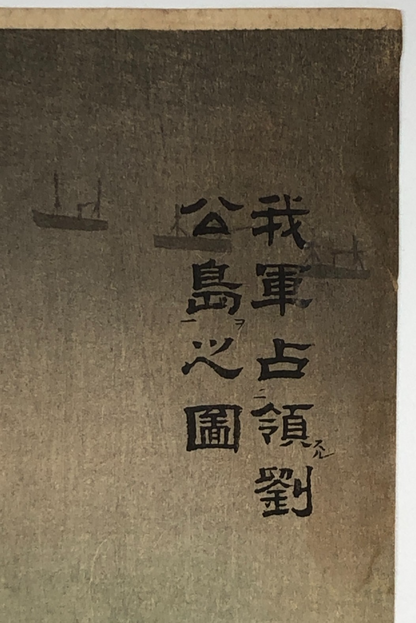 我軍占領劉
公島之圖